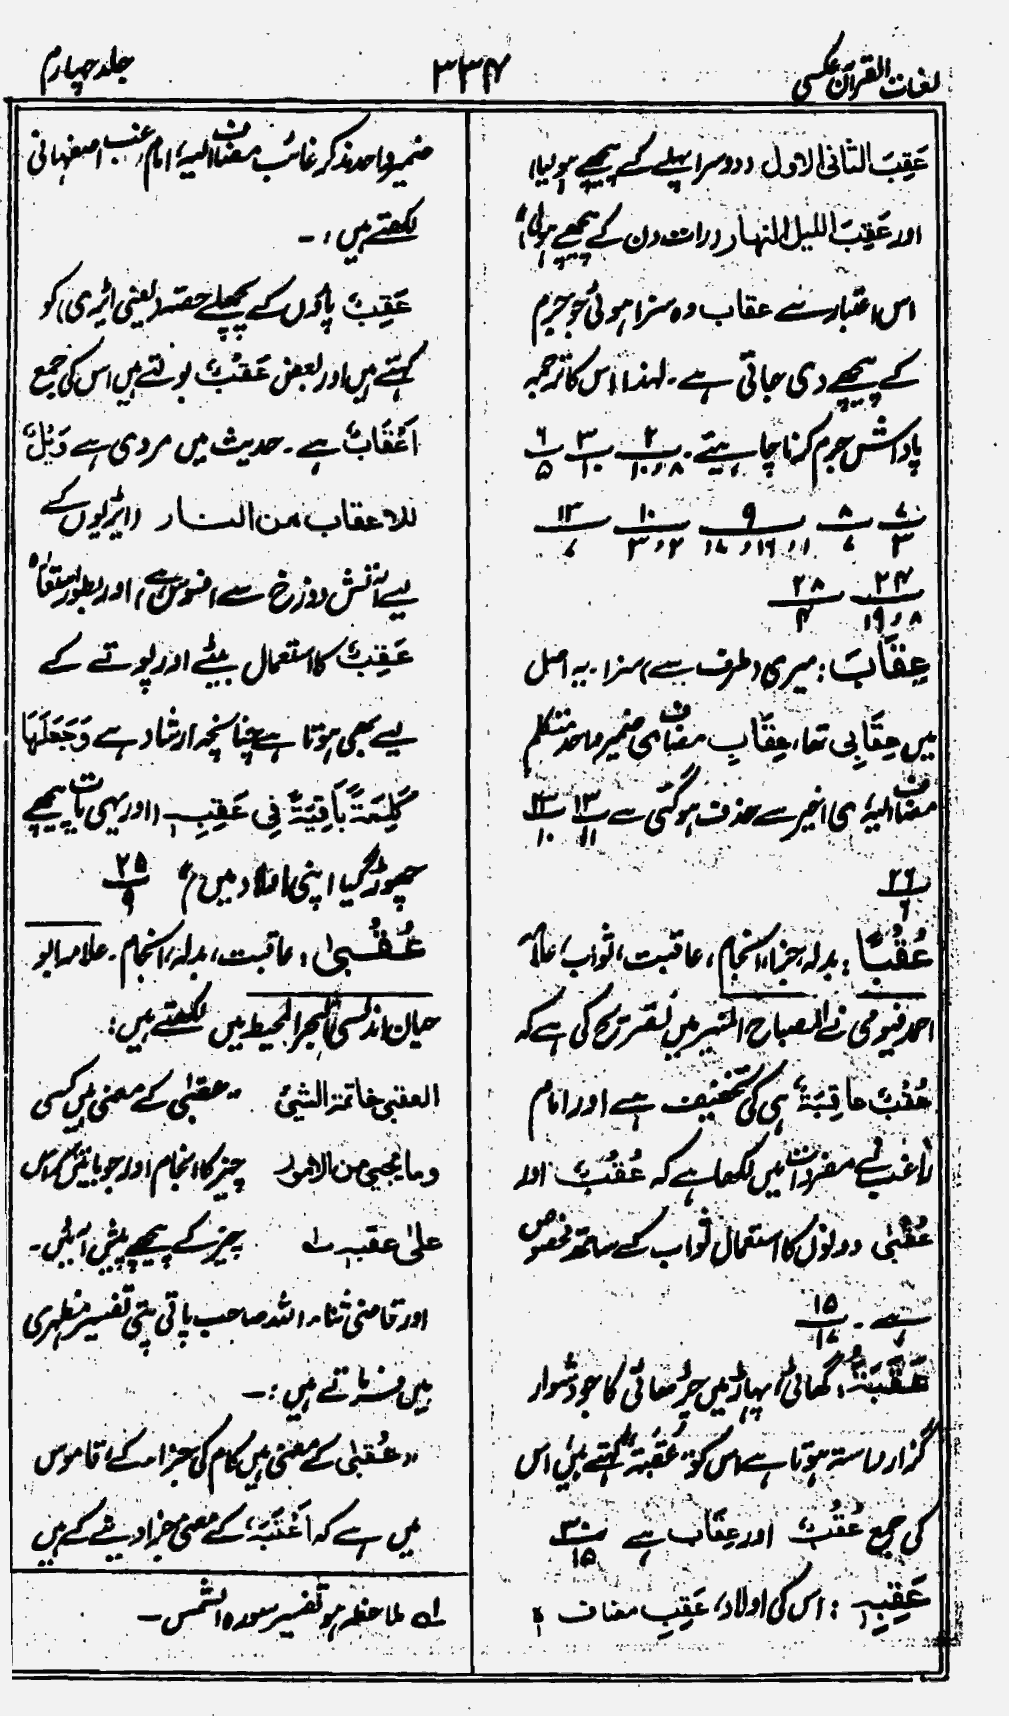 لغات القرآن عکسی
۳۳۴
جلد چہارم
عَقِبَ الثانی الاول (دوسرا پہلے کے پیچھے ہولیا)
اور عَقِبَ اللیل النہار (رات دن کے پیچھے ہولی)"
اس اعتبار سے عقاب وہ سزا ہوئی جو جرم
کے پیچھے دی جاتی ہے۔ لہذا اس کا ترجمہ
پاداشِ جرم کرنا چاہیئے۔ ۲/۸،۱۰ ۳/۱۰ ۶/۵
۷/۳ ۸/۷ ۹/۱،۱۶،۱۷ ۱۰/۲،۳ ۱۳/۷
۲۴/۸،۱۹ ۲۸/۴
عِقَابِ: میری (طرف سے) سزا۔ یہ اصل
میں عِقَابِی تھا، عِقَابِ مضاف ی ضمیر واحد متکلم
مضاف الیہ، ی اخیر سے حذف ہوگئی ہے ۱۳/۱۱ ۲۳/۱۰
۲۶/۶
عُقْبًا: بدلہ، جزا، انجام، عاقبت، ثواب، علامہ
احمد فیومی نے المصباح المنیر میں تصریح کی ہے کہ
عُقْبٌ عاقِبَۃٌ ہی کی تخفیف ہے اور امام
راغب نے مفردات میں لکھا ہے کہ عُقْبٌ اور
عُقْبٰی دونوں کا استعمال ثواب کے ساتھ مخصوص
ہے۔ ۱۵/۱۷
عَقَبَۃٌ: گھاٹی، پہاڑ میں چڑھائی کا جو دشوار
گزار راستہ ہوتا ہے اس کو "عَقَبَۃ" کہتے ہیں اس
کی جمع عُقُبٌ اور عِقَاب ہے ۳۰/۱۵
عَقِبِہٖ: اس کی اولاد، عَقِبِ مضاف ہٖ
ضمیر واحد مذکر غائب مضاف الیہ، امام راغب اصفہانی
لکھتے ہیں:۔
عَقِبٌ پاؤں کے پچھلے حصہ (یعنی ایڑی) کو
کہتے ہیں اور بعض عَقْبٌ بولتے ہیں اس کی جمع
اَعْقَابٌ ہے۔ حدیث میں مروی ہے وَیْلٌ
للاعقاب من النار (ایڑیوں کے
لیے آتش دوزخ سے افسوس ہے) اور بطور استعارہ
عَقِبٌ کا استعمال بیٹے اور پوتے کے
لیے بھی ہوتا ہے چنانچہ ارشاد ہے وَجَعَلَہَا
کَلِمَۃً بَاقِیَۃً فِی عَقِبِہٖ (اور یہی بات پیچھے
چھوڑ گیا اپنی اولاد میں)" ۲۵/۹
عُقْبٰی: عاقبت، بدلہ، انجام۔ علامہ ابو
حیان اندلسی البحر المحیط میں لکھتے ہیں:
العقبی خاتمۃ الشیٔ "عقبٰی کے معنی ہیں کسی
وما یجیٔ من الامور چیز کا انجام اور جو باتیں کہ اس
علیٰ عقبہٖ لہ چیز کے پیچھے پیش آئیں۔
اور قاضی ثناء اللہ صاحب پانی پتی تفسیر مظہری
میں فرماتے ہیں:۔
"عُقبٰی کے معنی ہیں کام کی جزاء کے، قاموس
میں ہے کہ اَعْقَبَہٗ کے معنی جزا دینے کے ہیں
لہ ملاحظہ ہو تفسیر سورہ الشمس۔